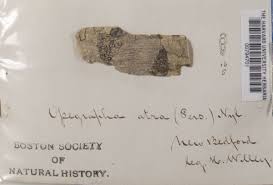 Opegrapha atra (Pers.) Nyl
New Bedford
leg. H. Willey
BOSTON SOCIETY
OF
NATURAL HISTORY.